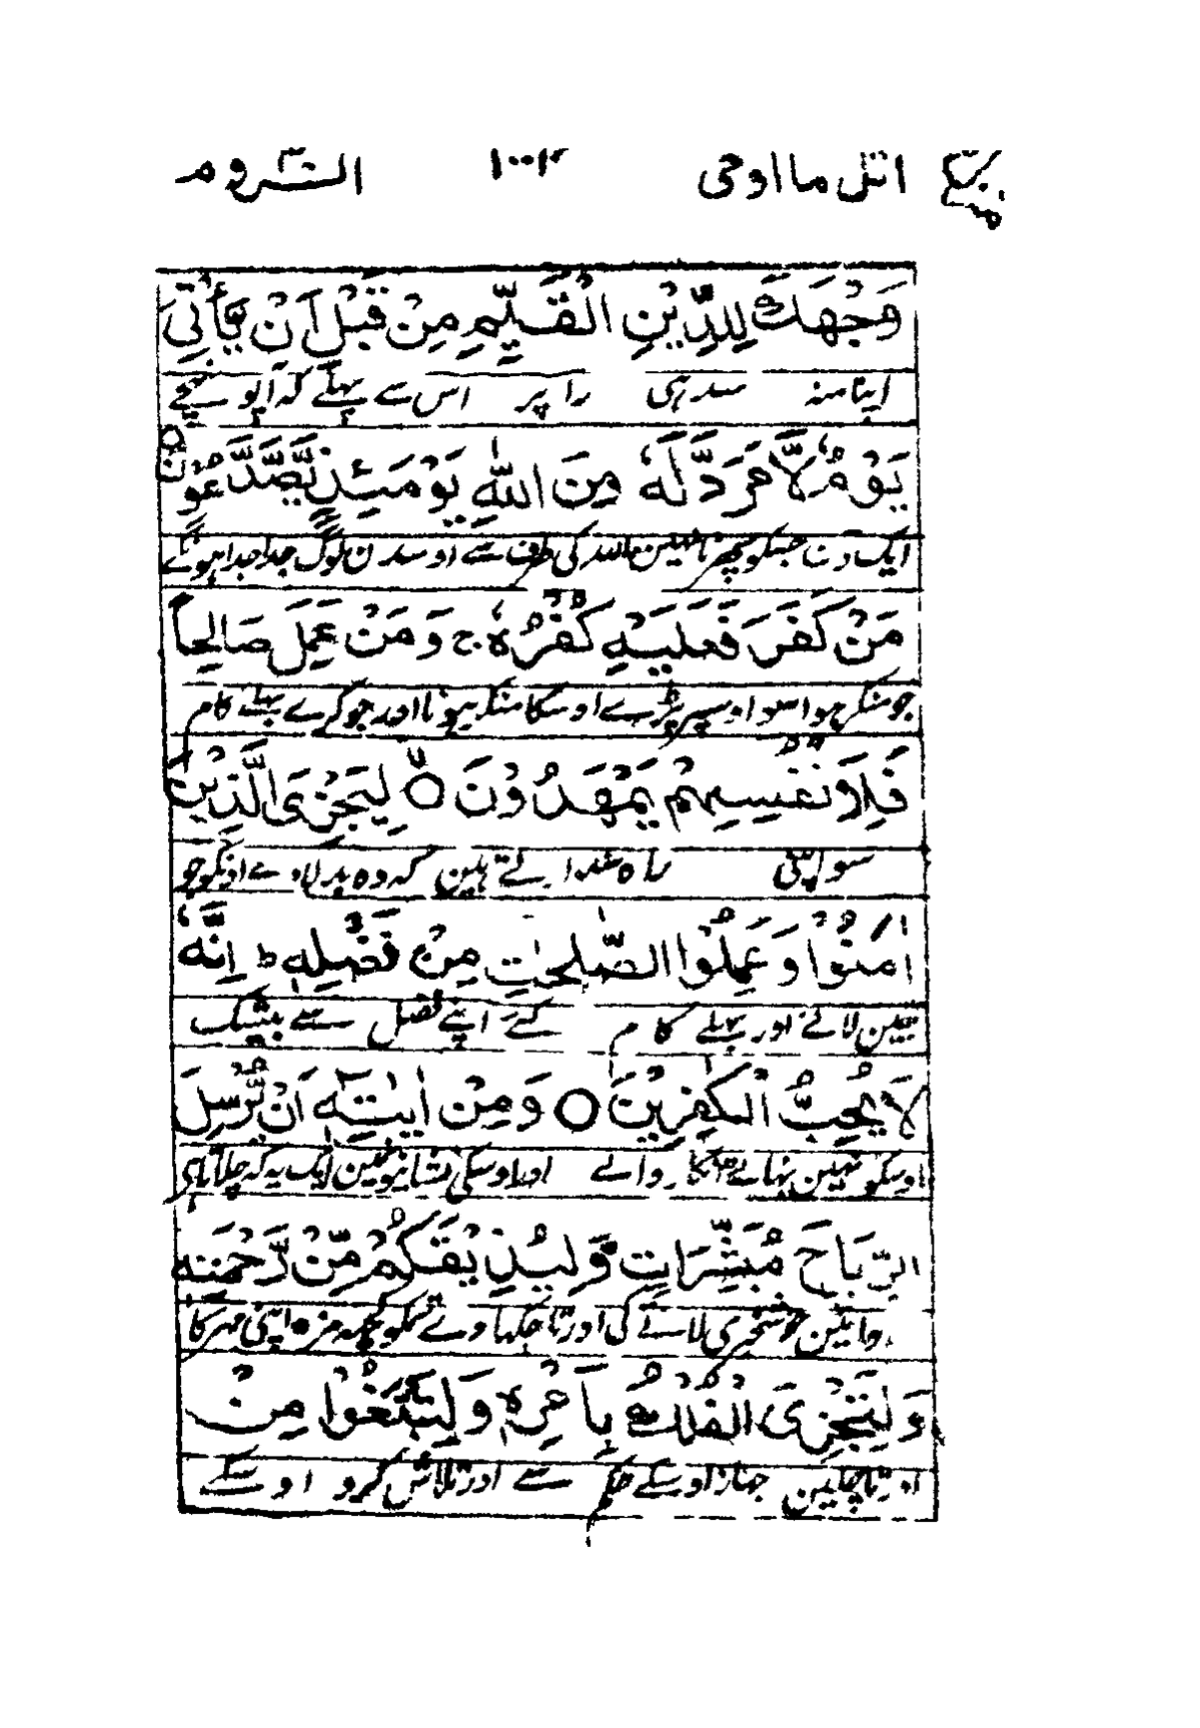 اتل ما اوحی ۱۰۰۲ الروم
وَجْهَكَ لِلدِّيْنِ الْقَيِّمِ مِنْ قَبْلِ اَنْ يَّأْتِيَ
اپنا منہ سدہی را پر اس سے پہلے کہ آ پہونچے
يَوْمٌ لَّا مَرَدَّ لَهٗ مِنَ اللّٰهِ يَوْمَئِذٍ يَّصَّدَّعُوْنَ
ایک دن جسکو پھرنا نہین اللہ کی طرف سے اوسدن لوگ جدا جدا ہونگے
مَنْ كَفَرَ فَعَلَيْهِ كُفْرُهٗ ج وَمَنْ عَمِلَ صَالِحًا
جو منکر ہوا سو اوسپر پڑے اوسکا منکر ہونا اور جو کرے بہلے کام
فَلِاَنْفُسِهِمْ يَمْهَدُوْنَ ○ لِيَجْزِيَ الَّذِيْنَ
سو اپنی راہ سنوارتے ہین کہ وہ بدلا دے اونکو جو
اٰمَنُوْا وَعَمِلُوا الصّٰلِحٰتِ مِنْ فَضْلِهٖ ط اِنَّهٗ
یقین لائے اور بہلے کام کئے اپنے فضل سے بیشک
لَا يُحِبُّ الْكٰفِرِيْنَ ○ وَمِنْ اٰيٰتِهٖٓ اَنْ يُّرْسِلَ
اوسکو نہین بہاتے انکار والے اور اوسکی نشانیونمین ایک یہ کہ چلاتا ہی
الرِّيَاحَ مُبَشِّرَاتٍ وَّلِيُذِيْقَكُمْ مِّنْ رَّحْمَتِهٖ
باوین خوشخبری لانے کی اور تا چکہاوے تمکو کچھ مزہ اپنی مہر کا
وَلِتَجْرِيَ الْفُلْكُ بِاَمْرِهٖ وَلِتَبْتَغُوْا مِنْ
اور تا چلین جہاز اوسکے حکم سے اور تلاش کرو اوسکے